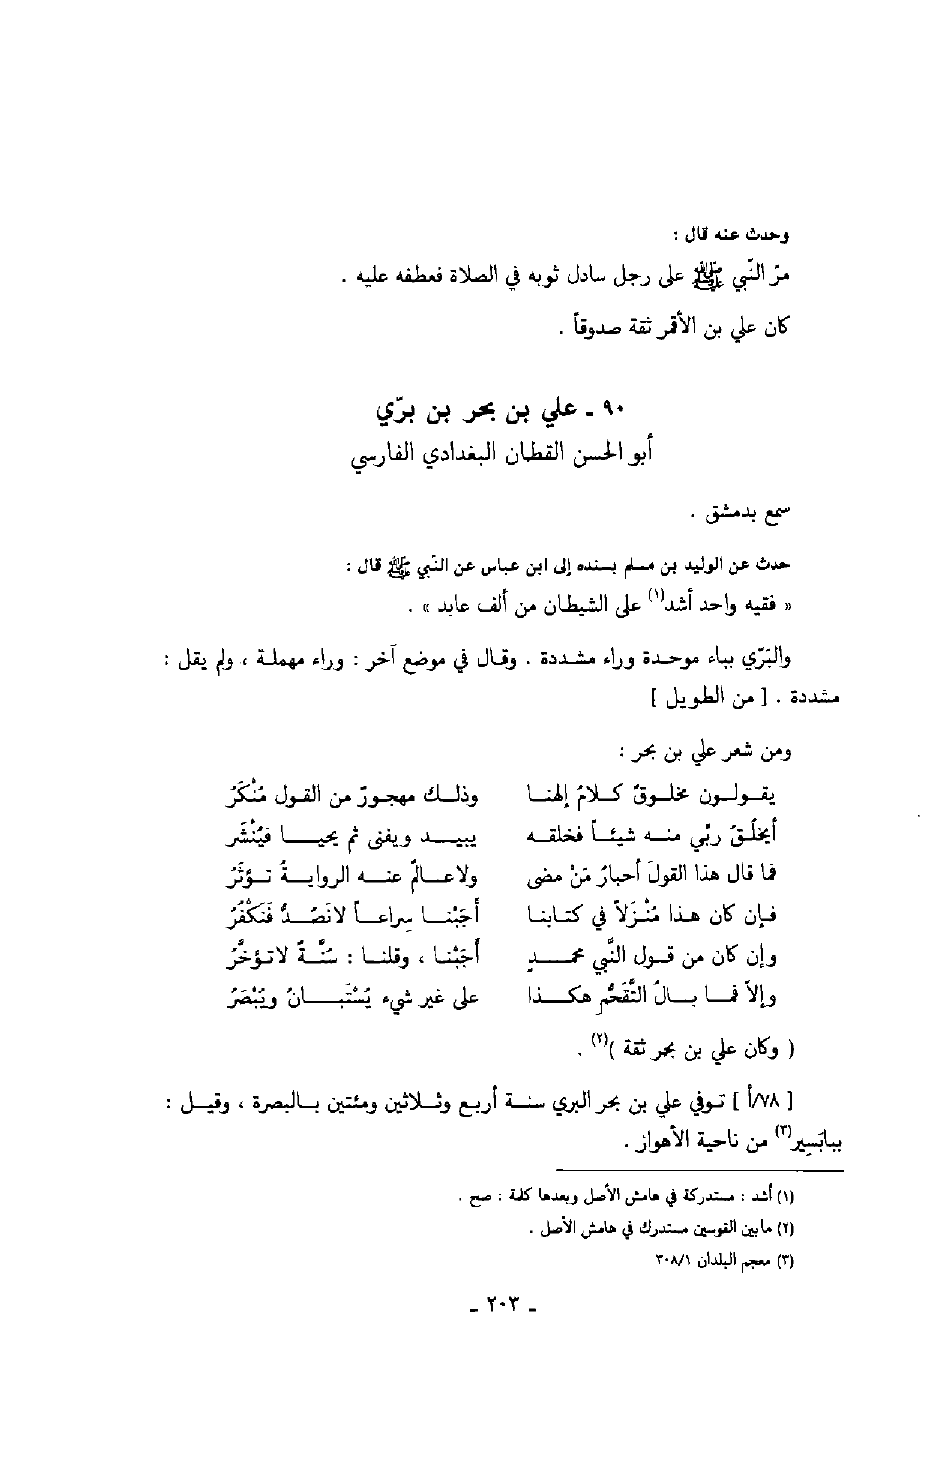 وحدث عنه قال :
مرّ النّبي ﷺ على رجل سادل ثوبه في الصلاة فعطفه عليه .
كان علي بن الأقر ثقة صدوقاً .
٩٠ ـ علي بن بحر بن برّي
أبو الحسن القطان البغدادي الفارسي
سمع بدمشق .
حدث عن الوليد بن مسلم بسنده إلى ابن عباس عن النّبي ﷺ قال :
« فقيه واحد أشد(١) على الشيطان من ألف عابد » .
والبَرّي بباء موحدة وراء مشددة . وقال في موضع آخر : وراء مهملة ، ولم يقل :
مشددة . [ من الطويل ]
ومن شعر علي بن بحر :
يقولون مخلوقٌ كلامُ إلهنا وذلك مهجورٌ من القول مُنْكَرُ
أيخلُقُ ربّي منه شيئاً فخلقه يبيد ويفنى ثم يحيا فيُنْشَر
فما قال هذا القولَ أحبارُ مَنْ مضى ولاعالمٌ عنه الروايةُ تؤثَرُ
فإن كان هذا مُنْزلاً في كتابنا أجَبْنا سِراعاً لانَصُدُّ فنَكْفُرُ
وإن كان من قول النَّبي محمدٍ أجَبْنا ، وقلنا : سُنَّةٌ لاتؤخَّرُ
وإلا فما بالُ التَّقَحُّمِ هكذا على غير شيء يُسْتَبانُ ويُبْصَرُ
( وكان علي بن بحر ثقة )(٢) .
[ ٧٨/أ ] توفي علي بن بحر البري سنة أربع وثلاثين ومئتين بالبصرة ، وقيل :
ببابَسِير(٣) من ناحية الأهواز .
(١) أشد : مستدركة في هامش الأصل وبعدها كلمة : صح .
(٢) مابين القوسين مستدرك في هامش الأصل .
(٣) معجم البلدان ٣٠٨/١
ـ ٢٠٣ ـ